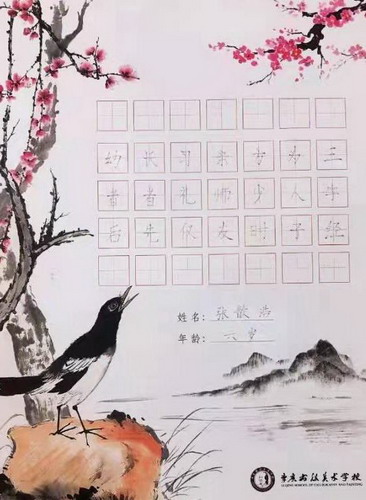 三字经
为人子
方少时
亲师友
习礼仪
长者先
幼者后
姓名: 张 浩
年龄: 六岁
重庆书法美术学校
SCHOOL OF CALLIGRAPHY AND PAINTING